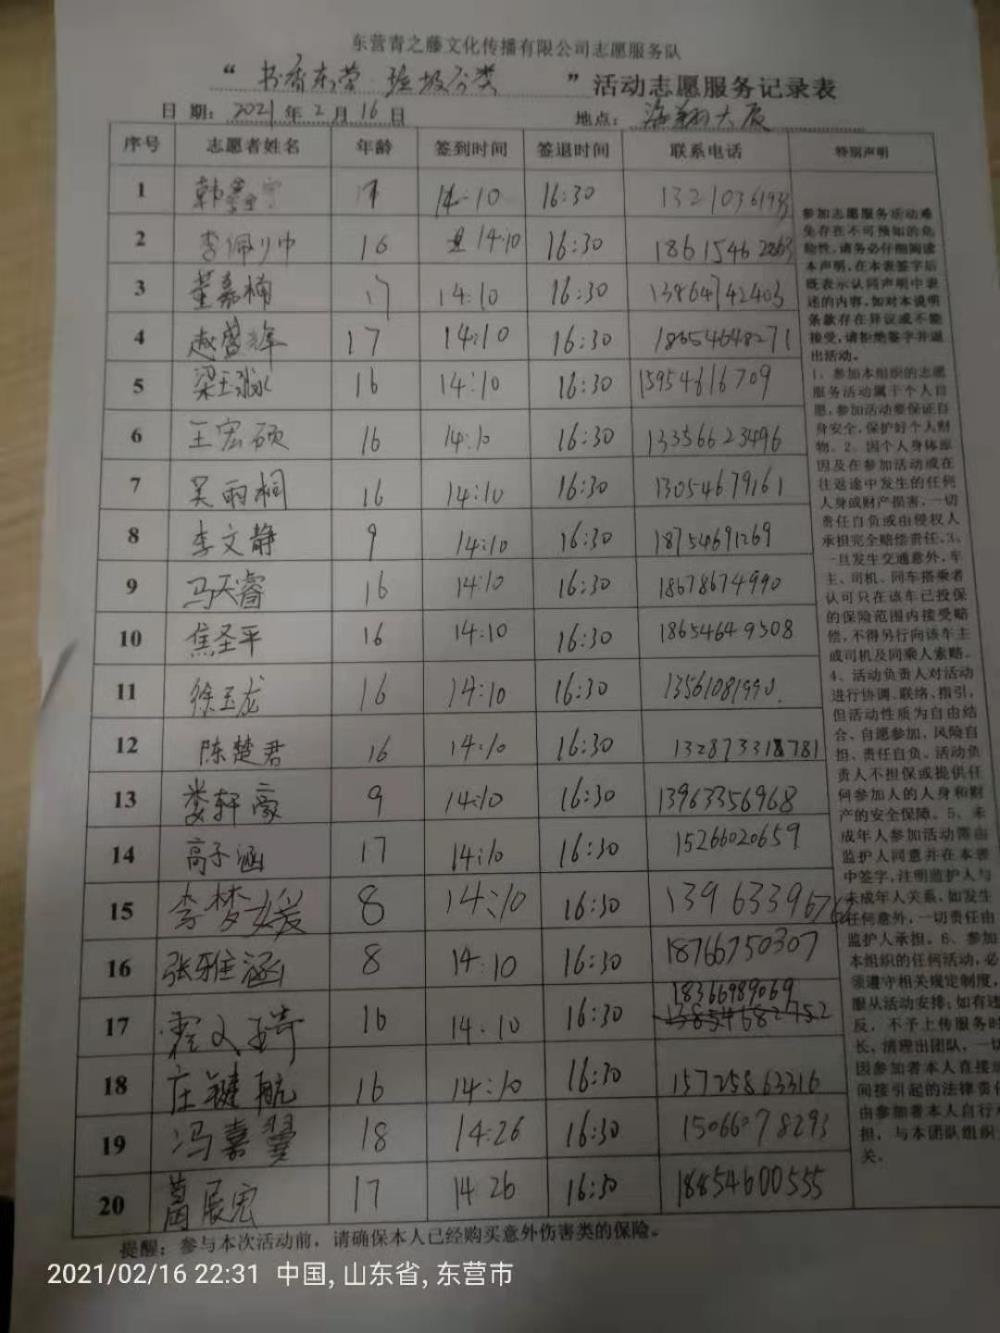 东营青之藤文化传播有限公司志愿服务队
“书香东营 垃圾分类”活动志愿服务记录表
日 期: 2021 年 2 月 16 日 地点: 海翔大厦
序号 志愿者姓名 年龄 签到时间 签退时间 联系电话 特别声明
1 韩 14:10 16:30
2 李佩 16 14:10 16:30
3 董嘉楠 17 14:10 16:30 13864742403
4 赵盛 17 14:10 16:30 18654648271
5 梁玉 16 14:10 16:30 15954616709
6 王宏硕 16 14:10 16:30 13356623496
7 吴雨桐 16 14:10 16:30 13054679161
8 李文静 9 14:10 16:30 18754691269
9 马天睿 16 14:10 16:30 18678674990
10 焦圣平 16 14:10 16:30 18654649508
11 徐玉龙 16 14:10 16:30
12 陈楚君 16 14:10 16:30
13 娄轩豪 9 14:10 16:30 13963356968
14 高子涵 17 14:10 16:30 15266020659
15 李梦媛 8 14:10 16:30
16 张雅涵 8 14:10 16:30 18766750307
17 霍文琦 16 14:10 16:30 18366989069
18 庄键航 16 14:10 16:30 15725863316
19 冯嘉翼 18 14:26 16:30 15066078293
20 葛辰宏 17 14 26 16:30 18854600555
参加志愿服务活动难
免存在不可预知的危
险性,请务必仔细阅读
本声明,在本表签字后
既表示认同声明中表
述的内容,如对本说明
条款存在异议或不能
接受,请拒绝签字并退
出活动。
1、参加本组织的志愿
服务活动属于个人自
愿,参加活动要保证自
身安全,保护好个人财
物。2、因个人身体原
因及在参加活动或在
往返途中发生的任何
人身或财产损害,一切
责任自负或由侵权人
承担完全赔偿责任。3、
一旦发生交通意外,车
主、司机、同车搭乘者
认可只在该车已投保
的保险范围内接受赔
偿,不得另行向该车主
或司机及同乘人索赔。
4、活动负责人对活动
进行协调、联络、指引,
但活动性质为自由结
合、自愿参加、风险自
担、责任自负。活动负
责人不担保或提供任
何参加人的人身和财
产的安全保障。5、未
成年人参加活动需由
监护人同意并在本表
中签字,注明监护人与
未成年人关系,如发生
任何意外,一切责任由
监护人承担。6、参加
本组织的任何活动,必
须遵守相关规定制度,
服从活动安排;如有违
反,不予上传服务时
长,清理出团队,一切
因参加者本人直接或
间接引起的法律责任
由参加者本人自行承
担,与本团队组织
关。
提醒:参与本次活动前,请确保本人已经购买意外伤害类的保险。
2021/02/16 22:31 中国,山东省,东营市